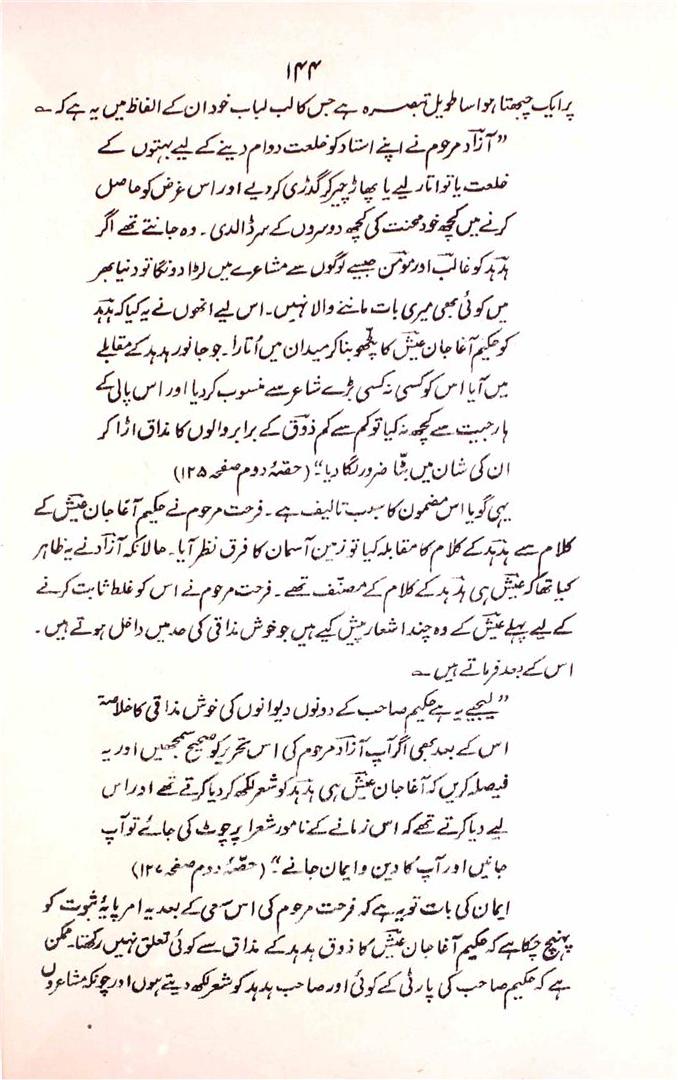 ۱۴۴
پر ایک چبھتا ہوا سا طویل تبصرہ ہے جس کا لب لباب خود ان کے الفاظ میں یہ ہے کہ ؎
”آزاد مرحوم نے اپنے استاد کو خلعت دوام دینے کے لیے بہتوں کے
خلعت یا تو اتار لیے یا پھاڑ چیر کر گدڑی کر دیے اور اس غرض کو حاصل
کرنے میں کچھ خود محنت کی کچھ دوسروں کے سر ڈالدی ۔ وہ جانتے تھے اگر
ہدہد کو غالب اور مومن جیسے لوگوں سے مشاعرے میں لڑا دونگا تو دنیا بھر
میں کوئی بھی میری بات ماننے والا نہیں۔ اس لیے انھوں نے یہ کیا کہ ہدہد
کو حکیم آغا جان عیش کا پٹھو بنا کر میدان میں اُتارا۔ جو جانور ہدہد کے مقابلے
میں آیا اس کو کسی نہ کسی بڑے شاعر سے منسوب کر دیا اور اس پالی کے
ہار جیت سے کچھ نہ کیا تو کم سے کم ذوق کے برابر والوں کا مذاق اڑا کر
ان کی شان میں بٹا ضرور لگا دیا“ (حصّۂ دوم صفحہ ۱۲۵)
یہی گویا اس مضمون کا سبب تالیف ہے ۔ فرحت مرحوم نے حکیم آغا جان عیش کے
کلام سے ہدہد کے کلام کا مقابلہ کیا تو زمین آسمان کا فرق نظر آیا۔ حالانکہ آزاد نے یہ ظاہر
کیا تھا کہ عیش ہی ہدہد کے کلام کے مصنّف تھے ۔ فرحت مرحوم نے اس کو غلط ثابت کرنے
کے لیے پہلے عیش کے وہ چند اشعار پیش کیے ہیں جو خوش مذاقی کی حد میں داخل ہوتے ہیں ۔
اس کے بعد فرماتے ہیں ؎
”لیجیے یہ ہے حکیم صاحب کے دونوں دیوانوں کی خوش مذاقی کا خلاصہ
اس کے بعد بھی اگر آپ آزاد مرحوم کی اس تحریر کو صحیح سمجھیں اور یہ
فیصلہ کریں کہ آغا جان عیش ہی ہدہد کو شعر لکھ کر دیا کرتے تھے اور اس
لیے دیا کرتے تھے کہ اس زمانے کے نامور شعرا پر چوٹ کی جائے تو آپ
جانیں اور آپ کا دین و ایمان جانے“۔ (حصّۂ دوم صفحہ ۱۲۷)
ایمان کی بات تو یہ ہے کہ فرحت مرحوم کی اس سعی کے بعد یہ امر پایۂ ثبوت کو
پہنچ چکا ہے کہ حکیم آغا جان عیش کا ذوق ہدہد کے مذاق سے کوئی تعلق نہیں رکھتا۔ ممکن
ہے کہ حکیم صاحب کی پارٹی کے کوئی اور صاحب ہدہد کو شعر لکھ دیتے ہوں اور چونکہ مشاعروں